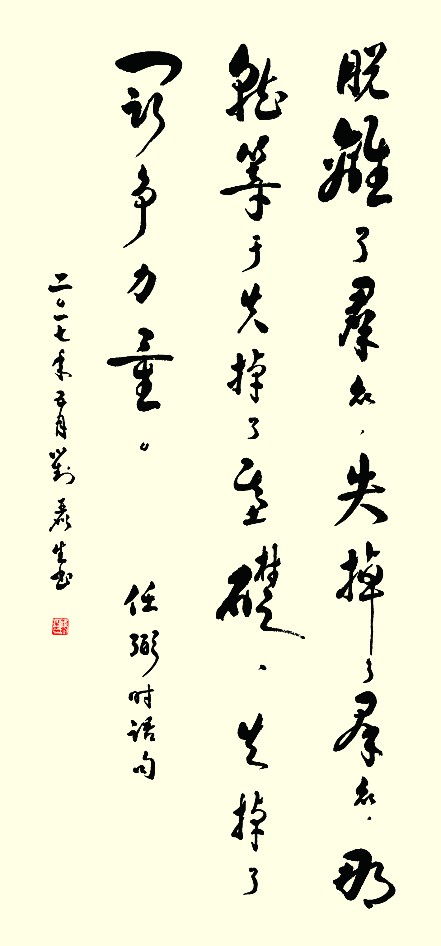 脱離了羣众，失掉了羣众，那
就等于失掉了基礎、失掉了
鬭争力量。
任弼时語句
二〇一七年五月劉生书